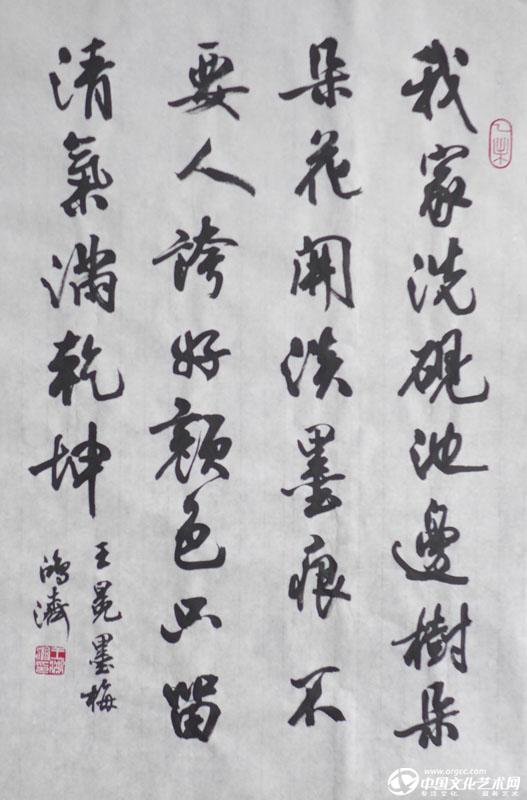 我家洗硯池邊樹朵
朵花開淡墨痕不
要人誇好顏色只留
清氣滿乾坤
王冕墨梅
鴻濤
www.orgcc.com
中国文化艺术网